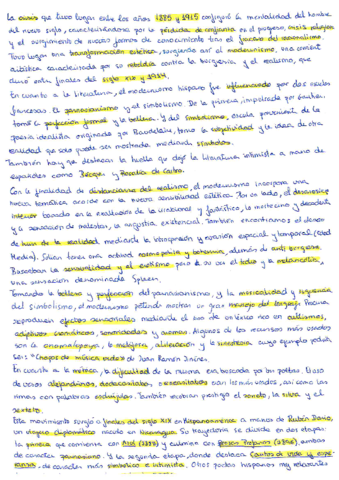 La crisis que tuvo lugar entre los años 1885 y 1915 configuró la mentalidad del hombre
del nuevo siglo, caracterizándose por la pérdida de confianza en el progreso, crisis religiosa
y el surgimiento de nuevas formas de conocimiento tras el fracaso del racionalismo.
Tuvo lugar una transformación estética, surgiendo así el modernismo, una corriente
artística caracterizada por su rebeldía contra la burguesía y el realismo, que
duró entre finales del siglo XIX y 1914.
En cuanto a la literatura, el modernismo hispano fue influenciado por dos estilos
franceses. El parnasianismo y el simbolismo. De la primera, impulsada por Gautier,
tomó la perfección formal y la belleza. Y del simbolismo, escuela proveniente de la
poesía idealista originada por Baudelaire, tomó la subjetividad y la idea de otra
realidad que solo puede ser mostrada mediante símbolos.
También hay que destacar la huella que dejó la literatura intimista a mano de
españoles como Bécquer y Rosalía de Castro.
Con la finalidad de distanciarse del realismo, el modernismo incorpora una
nueva temática acorde con la nueva sensibilidad estética. Por un lado, el desasosiego
interior basado en la exaltación de lo irracional y fantástico, lo nocturno y decadente
y la sensación de malestar, la angustia existencial. También encontramos el deseo
de huir de la realidad mediante la introspección y evasión espacial y temporal (Edad
Media). Solían tener una actitud cosmopolita y bohemia, además de anti burguesa.
Resaltaban la sensualidad y el erotismo pero a su vez el tedio y la melancolía,
una sensación denominada Spleen.
Tomando la belleza y perfección del parnasianismo, y la musicalidad y sugerencia
del simbolismo, el modernismo pretende mostrar un gran manejo del lenguaje. Procura
reproducir efectos sensoriales mediante el uso de un léxico rico en cultismos,
adjetivos cromáticos, sonoridades y aromas. Algunos de los recursos más usados
son la onomatopeya, la metáfora, aliteración y la sinestesia, cuyo ejemplo podría
ser: de Juan Ramón Jiménez.
En cuanto a la métrica, la dificultad de la misma era buscada por los poetas. El uso
de versos alejandrinos, dodecasílabos, o eneasílabos son los más usados, así como las
rimas con palabras esdrújulas. También recobran prestigio el soneto, la silva y el
sexteto.
Este movimiento surgió a finales del siglo XIX en Hispanoamérica a manos de Rubén Darío,
un viajero diplomático nacido en Nicaragua. Su trayectoria se divide en dos etapas:
la primera que comienza con Azul (1888) y culmina con Prosas Profanas (1896), ambas
de carácter parnasiano. Y la segunda etapa, donde destaca Cantos de vida y espe-
ranza, de carácter más simbólico e intimista. Otros poetas hispanos muy relevantes